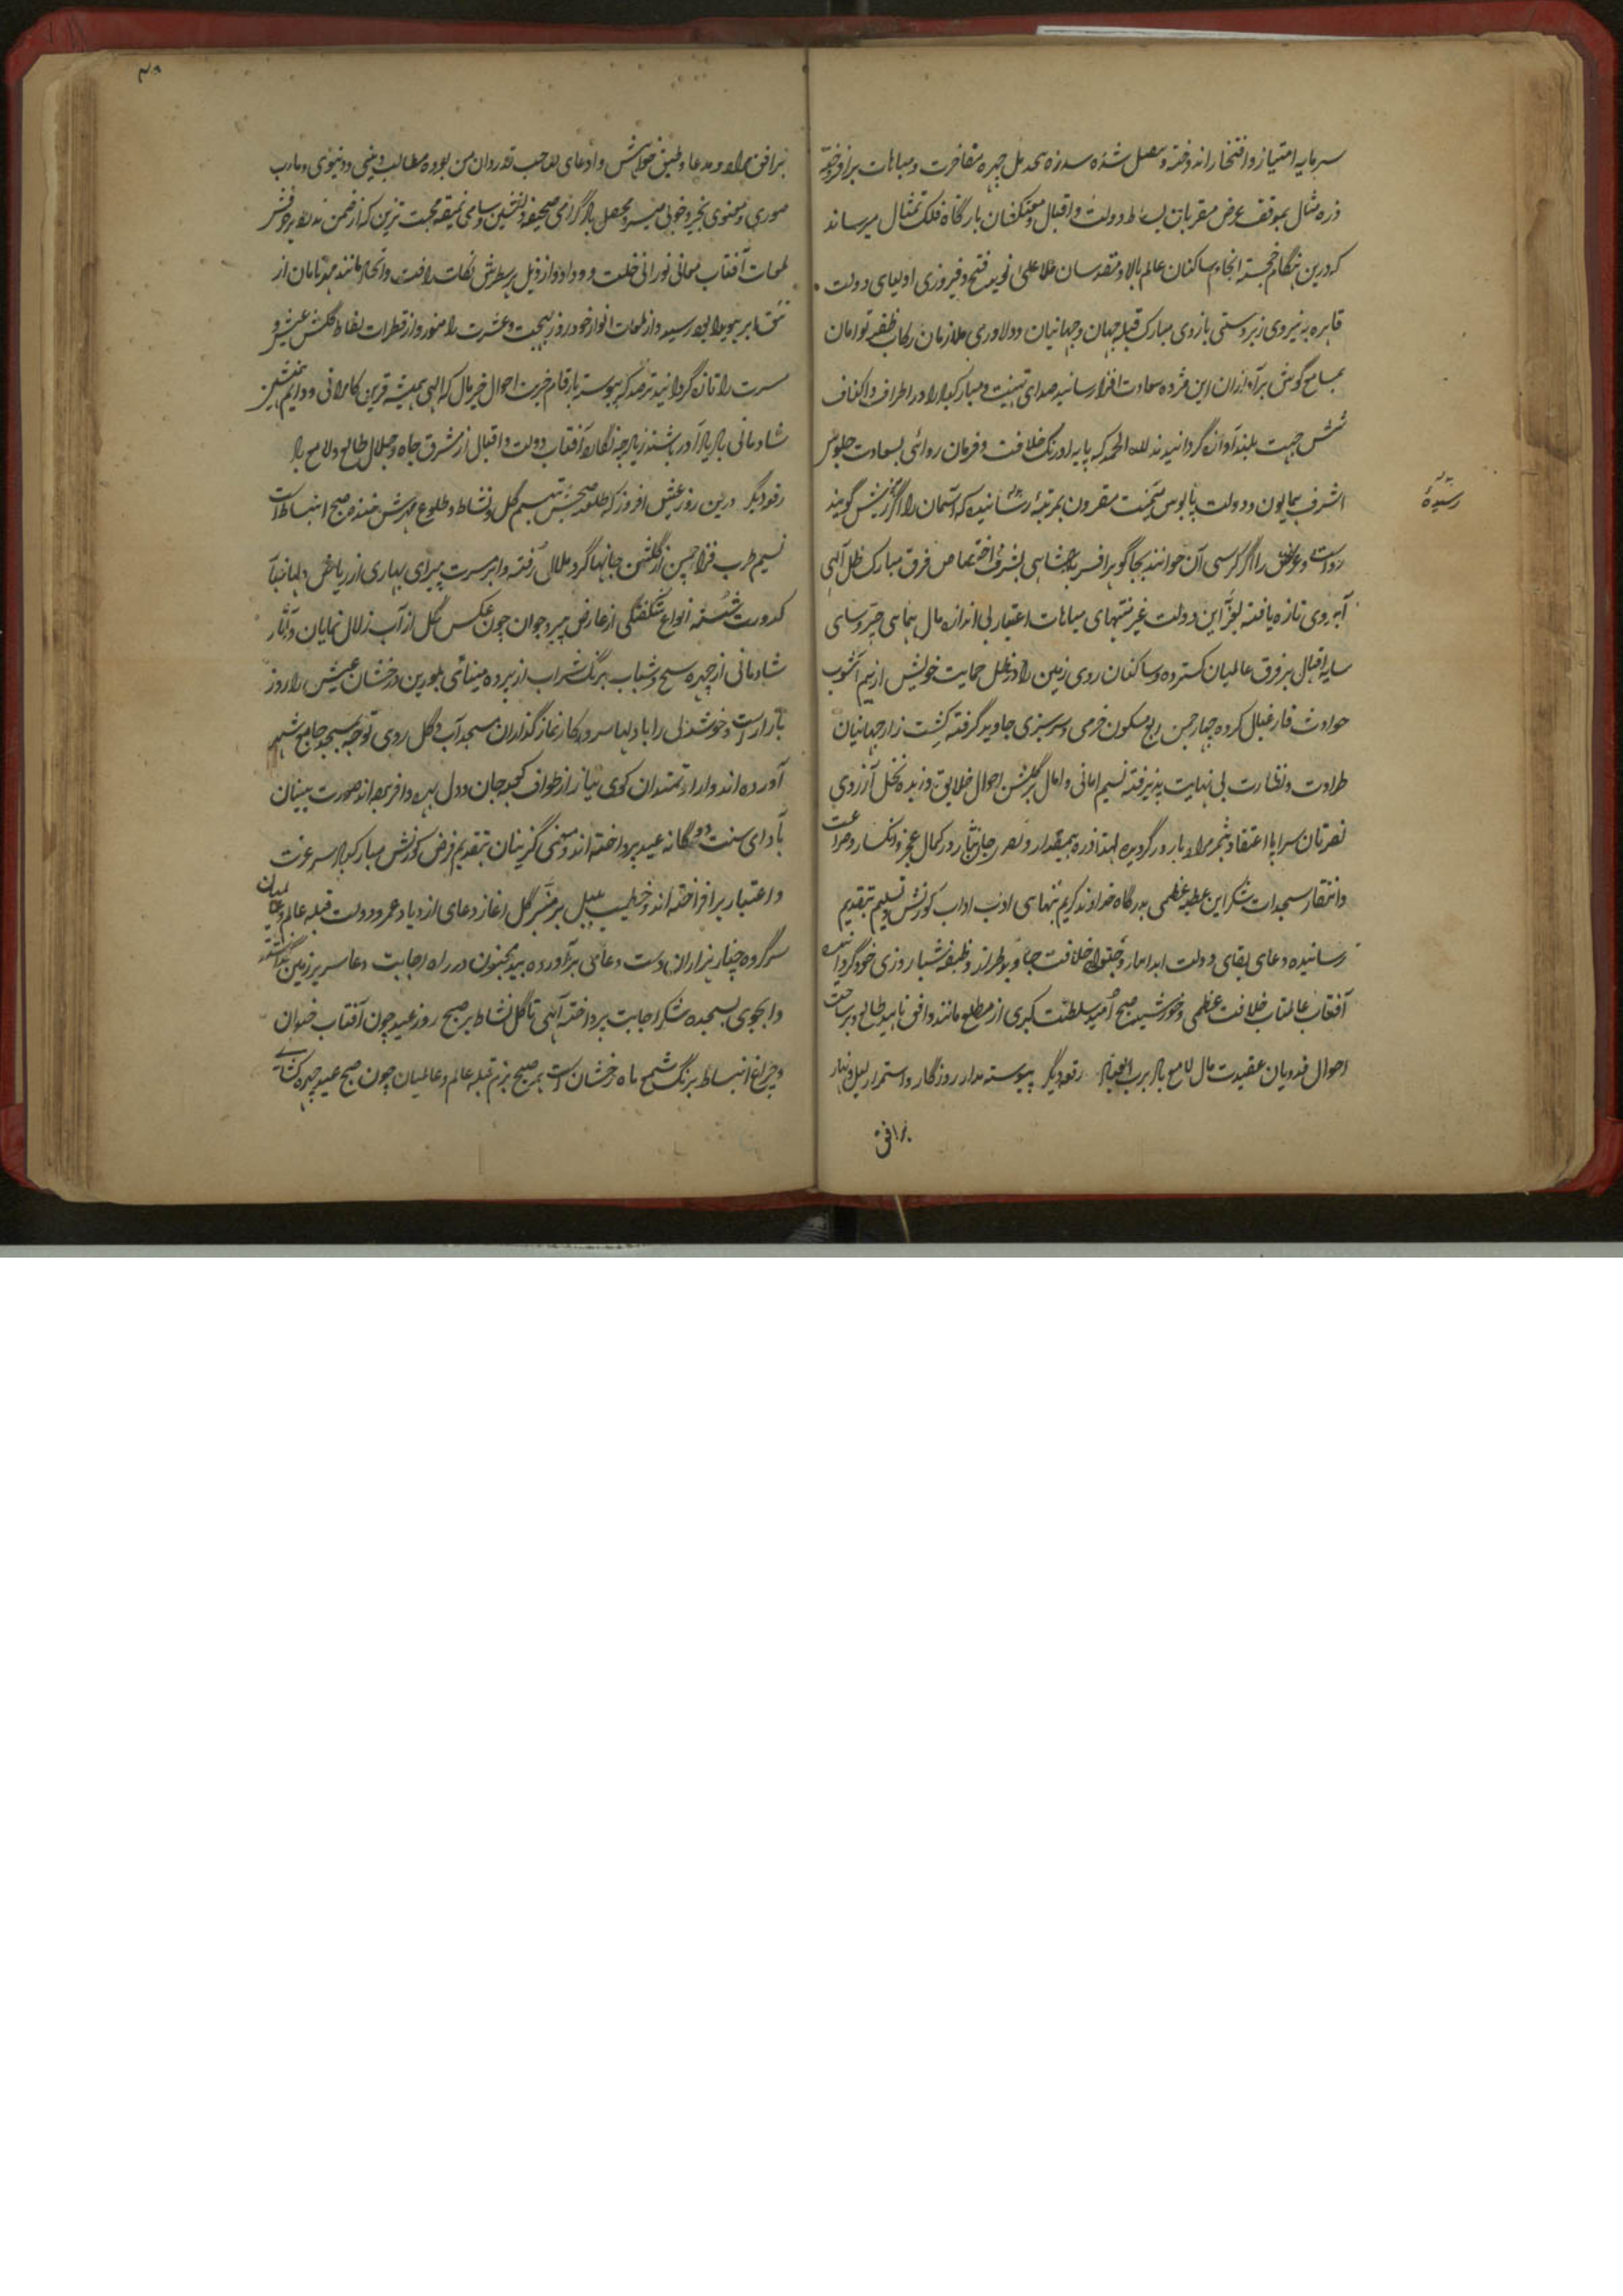 سرمایه امتیاز و افتخار اندوخته و شده چهره مفاخرت و مباهات برافروخته
ذره مثال بموقف عرض مقربان بساط دولت و اقبال و معتکفان بارگاه فلک تمثال میرساند
که درین هنگام خجسته انجام ساکنان عالم بالا و مقدسان ملاء اعلی نوید فتح و فیروزی اولیای دولت
قاهره به نیروی زبردستی بازوی مبارک قبله جهان و جهانیان و دلاوری ملازمان رکاب ظفر توامان
بمسامع گوش برآوازان این مژده سعادت افزا رسانیده صدای تهنیت و مبارکباد را در اطراف و اکناف
شش جهت بلند آوازه گردانیدند لله الحمد که پایه اورنگ خلافت و فرمان روائی بسعادت جلوس
اشرف همایون و دولت پابوس میمنت مقرون بمرتبه رسانیده که آسمان را اگر گویند
رواست و عرش را اگر کرسی آن خوانند بجا گوهر افسر بشرف اختصاص فرق مبارک ظل آلهی
آبروی تازه یافته این دولت غیر منتهای مباهات اعتبار بی اندازه مال همای چتر سای
سایه اقبال بر فرق عالمیان گسترده و ساکنان روی زمین را در ظل حمایت خویش از بیم آشوب
حوادث فارغبال کرده چهار چمن ربع مسکون خرمی و سرسبزی جاوید گرفته کشت زار جهانیان
طراوت و نظارت بی نهایت پذیرفته نسیم امانی و امال بر گلشن احوال خلایق وزیده نخل آرزوی
سراپا اعتقاد بثمر مراد بارور گردیده لهذا ذره بیمقدار در کمال عجز و انکسار و ضراعت
و سجدات شکر این عطیه عظمی بدرگاه خداوند کریم اداب کورنش و تسلیم بتقدیم
رسانیده دعای بقای دولت ابد خلافت وظیفه شبا روزی خود گردانیده
آفتاب عالمتاب خلافت عظمی و خورشید صبح امید سلطنت کبری از مطلع طالع و بر ساحت
احوال فدویان عقیدت مال لامع باد برب العباد رقعه دیگر پیوسته مدار روزگار و استمرار لیل و نهار
برافق
رسیده
۳۸
برافق مراد و مدعا و طبق خواهش و ادعای صاحب قدردان من بوده مطالب دینی و دنیوی و مارب
صوری و معنوی بخیر و خوبی میسر و محصل باد گرامی صحیفه و سامی نمیقه محبت تزیین که از ضمن
لمعات آفتاب معانی نورانی مانند ماه تابان از
رسید و از لمعات انوار خود روز بهجت و عشرت را منور و از قطرات گلشن عیش و
مسرت را تازه گردانید مترصد که پیوسته بارقام خیریت احوال خیر مال که الهی همیشه قرین کامرانی و همنشین
شادمانی باد یاد آور باشند زیاده چه نگارد آفتاب دولت و اقبال از مشرق جاه و جلال طالع و لامع باد
رقعه دیگر درین روز عیش افروز که تبسم گل نشاط و طلوع خنده صبح انبساط است
نسیم طرب فزا چمن از گلشن جانها گرد ملال رفته و ابر مسرت پیرای بهاری از ریاض دلها
کدورت شسته انواع شگفتگی از عارض پیر و جوان چون عکس گل از آب زلال نمایان و آثار
شادمانی از چهره شیخ و شباب برنگ شراب از پرده مینای بلورین درخشان عیش را روز
بازار است و خوشدلی را با دلها سر و کار نماز گذاران مسجد آب و گل روی توجه بمسجد جامع
آورده اند و ارادتمندان کوی نیاز از طواف کعبه جان و دل بهره وافر صورت بینان
بادای سنت دوگانه عید پرداخته اند و معنی گزینان بتقدیم فرض کورنش مبارکباد سر عزت
و اعتبار برافراخته اند و خطیب بلبل بر منبر گل آغاز دعای ازدیاد عمر و دولت قبله عالم و عالمیان
سر کرده چنار هزاران دست دعا بر آورده بید مجنون در راه اجابت دعا سر بر زمین گذاشته
و بسجده شکر اجابت پرداخته آلهی تا گل نشاط بر صبح روز عید چون آفتاب خندان
و چراغ انبساط برنگ شمع ماه درخشان است هر صبح بزم قبله عالم و عالمیان چون صبح عید چهره